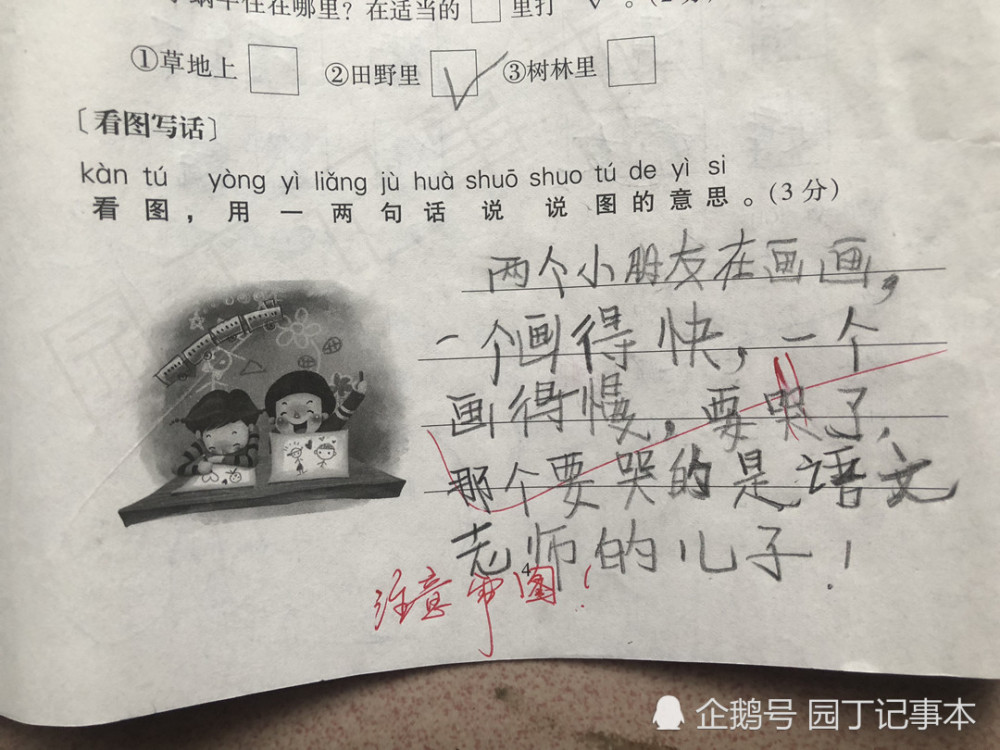 蜗牛住在哪里？在适当的□里打"√"。(2分)
①草地上 □ ②田野里 ☑ ③树林里 □
〔看图写话〕
kàn tú yòng yì liǎng jù huà shuō shuo tú de yì si
看图，用一两句话说说图的意思。(3分)
两个小朋友在画画，
一个画得快，一个
画得慢，要哭了，
那个要哭的是语文
老师的儿子！
4
注意审图！
企鹅号 园丁记事本